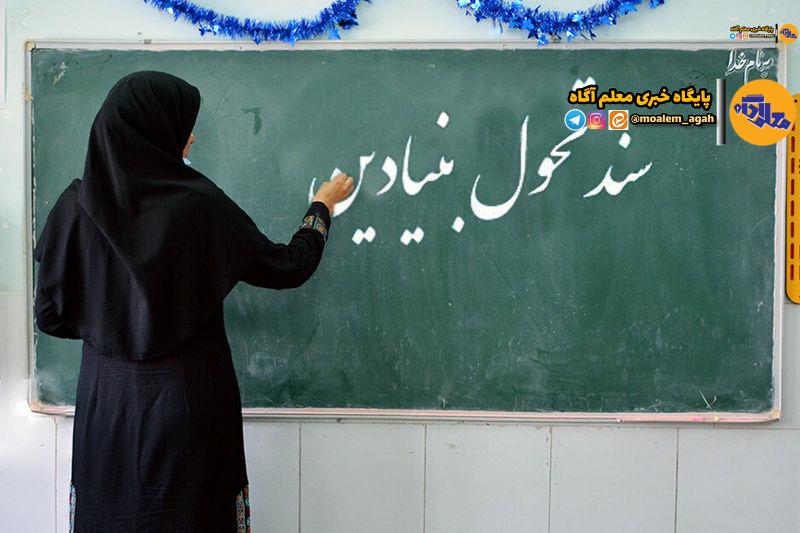 به نام خدا
پایگاه خبری معلم آگاه
@moalem_agah
معلم آگاه
سند تحول بنیادین